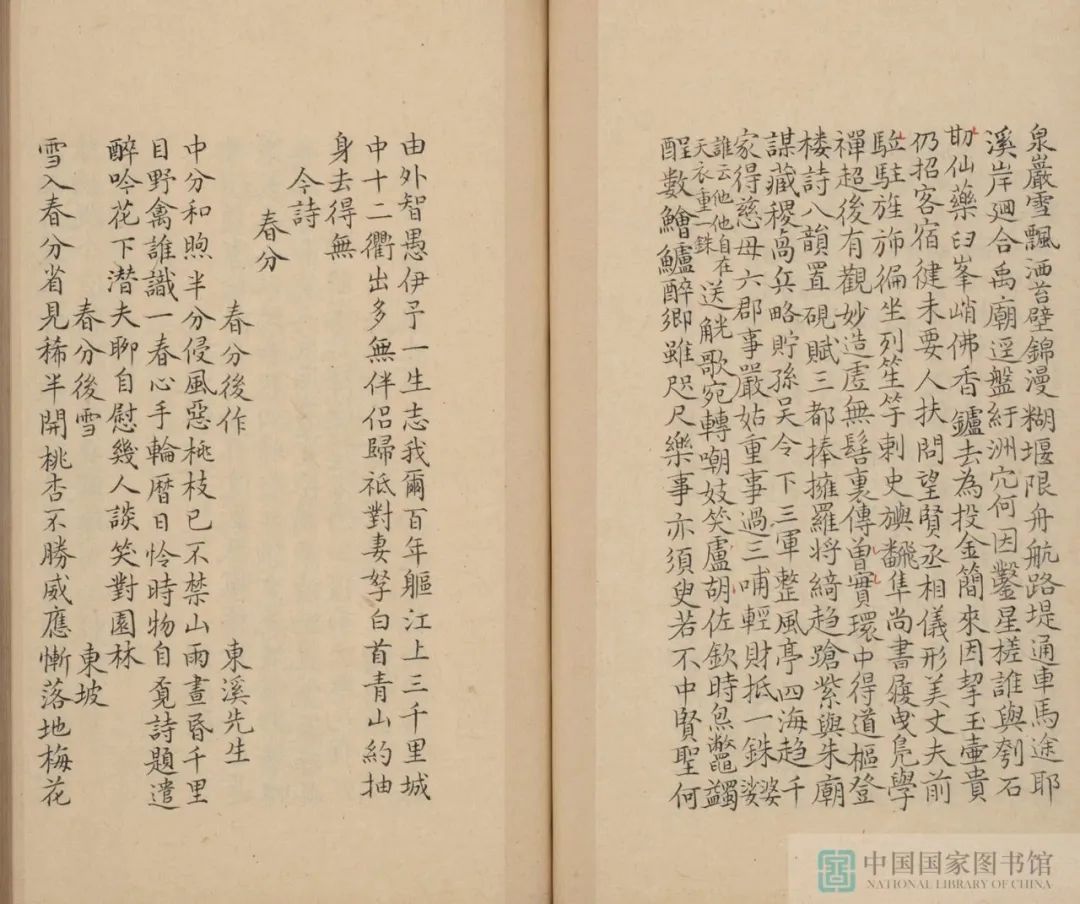 泉巖雪飄洒苔壁錦漫糊堰限舟航路堤通車馬途耶
溪岸廻合禹廟逕盤紆洲穴何因鑿星槎誰與刳石
仙藥臼峯峭佛香鑪去為投金簡來因挈玉壺貴
仍招客宿健未要人扶問望賢丞相儀形美丈夫前
駐旌斾徧坐列笙竽刺史旟翻隼尚書履曳鳧學
禪超後有觀妙造虛無髻裏傳曾寳環中得道樞登
楼詩八韻置硯賦三都捧擁羅将綺趋蹌紫與朱廟
謀藏稷卨兵略貯孫吳令下三軍整風亭四海趋千
家得慈母六郡事嚴姑重事過三哺輕財抵一銖婆娑
誰云他他自在
天衣重一銖
送觥歌宛轉嘲妓笑盧胡佐飲時炰鼈蠲
酲數鱠鱸醉卿雖咫尺樂事亦須臾若不中賢聖何
由外智愚伊予一生志我爾百年軀江上三千里城
中十二衢出多無伴侣歸祗對妻孥白首青山約抽
身去得無
今詩
春分
春分後作 東溪先生
中分和煦半分侵風惡桃枝已不禁山雨晝昏千里
目野禽誰識一春心手輪曆日怜時物自覔詩題遣
醉吟花下潜夫聊自慰幾人談笑對園林
春分後雪 東坡
雪入春分省見稀半開桃杏不勝威應慚落地梅花
中国国家图书馆
NATIONAL LIBRARY OF CHINA